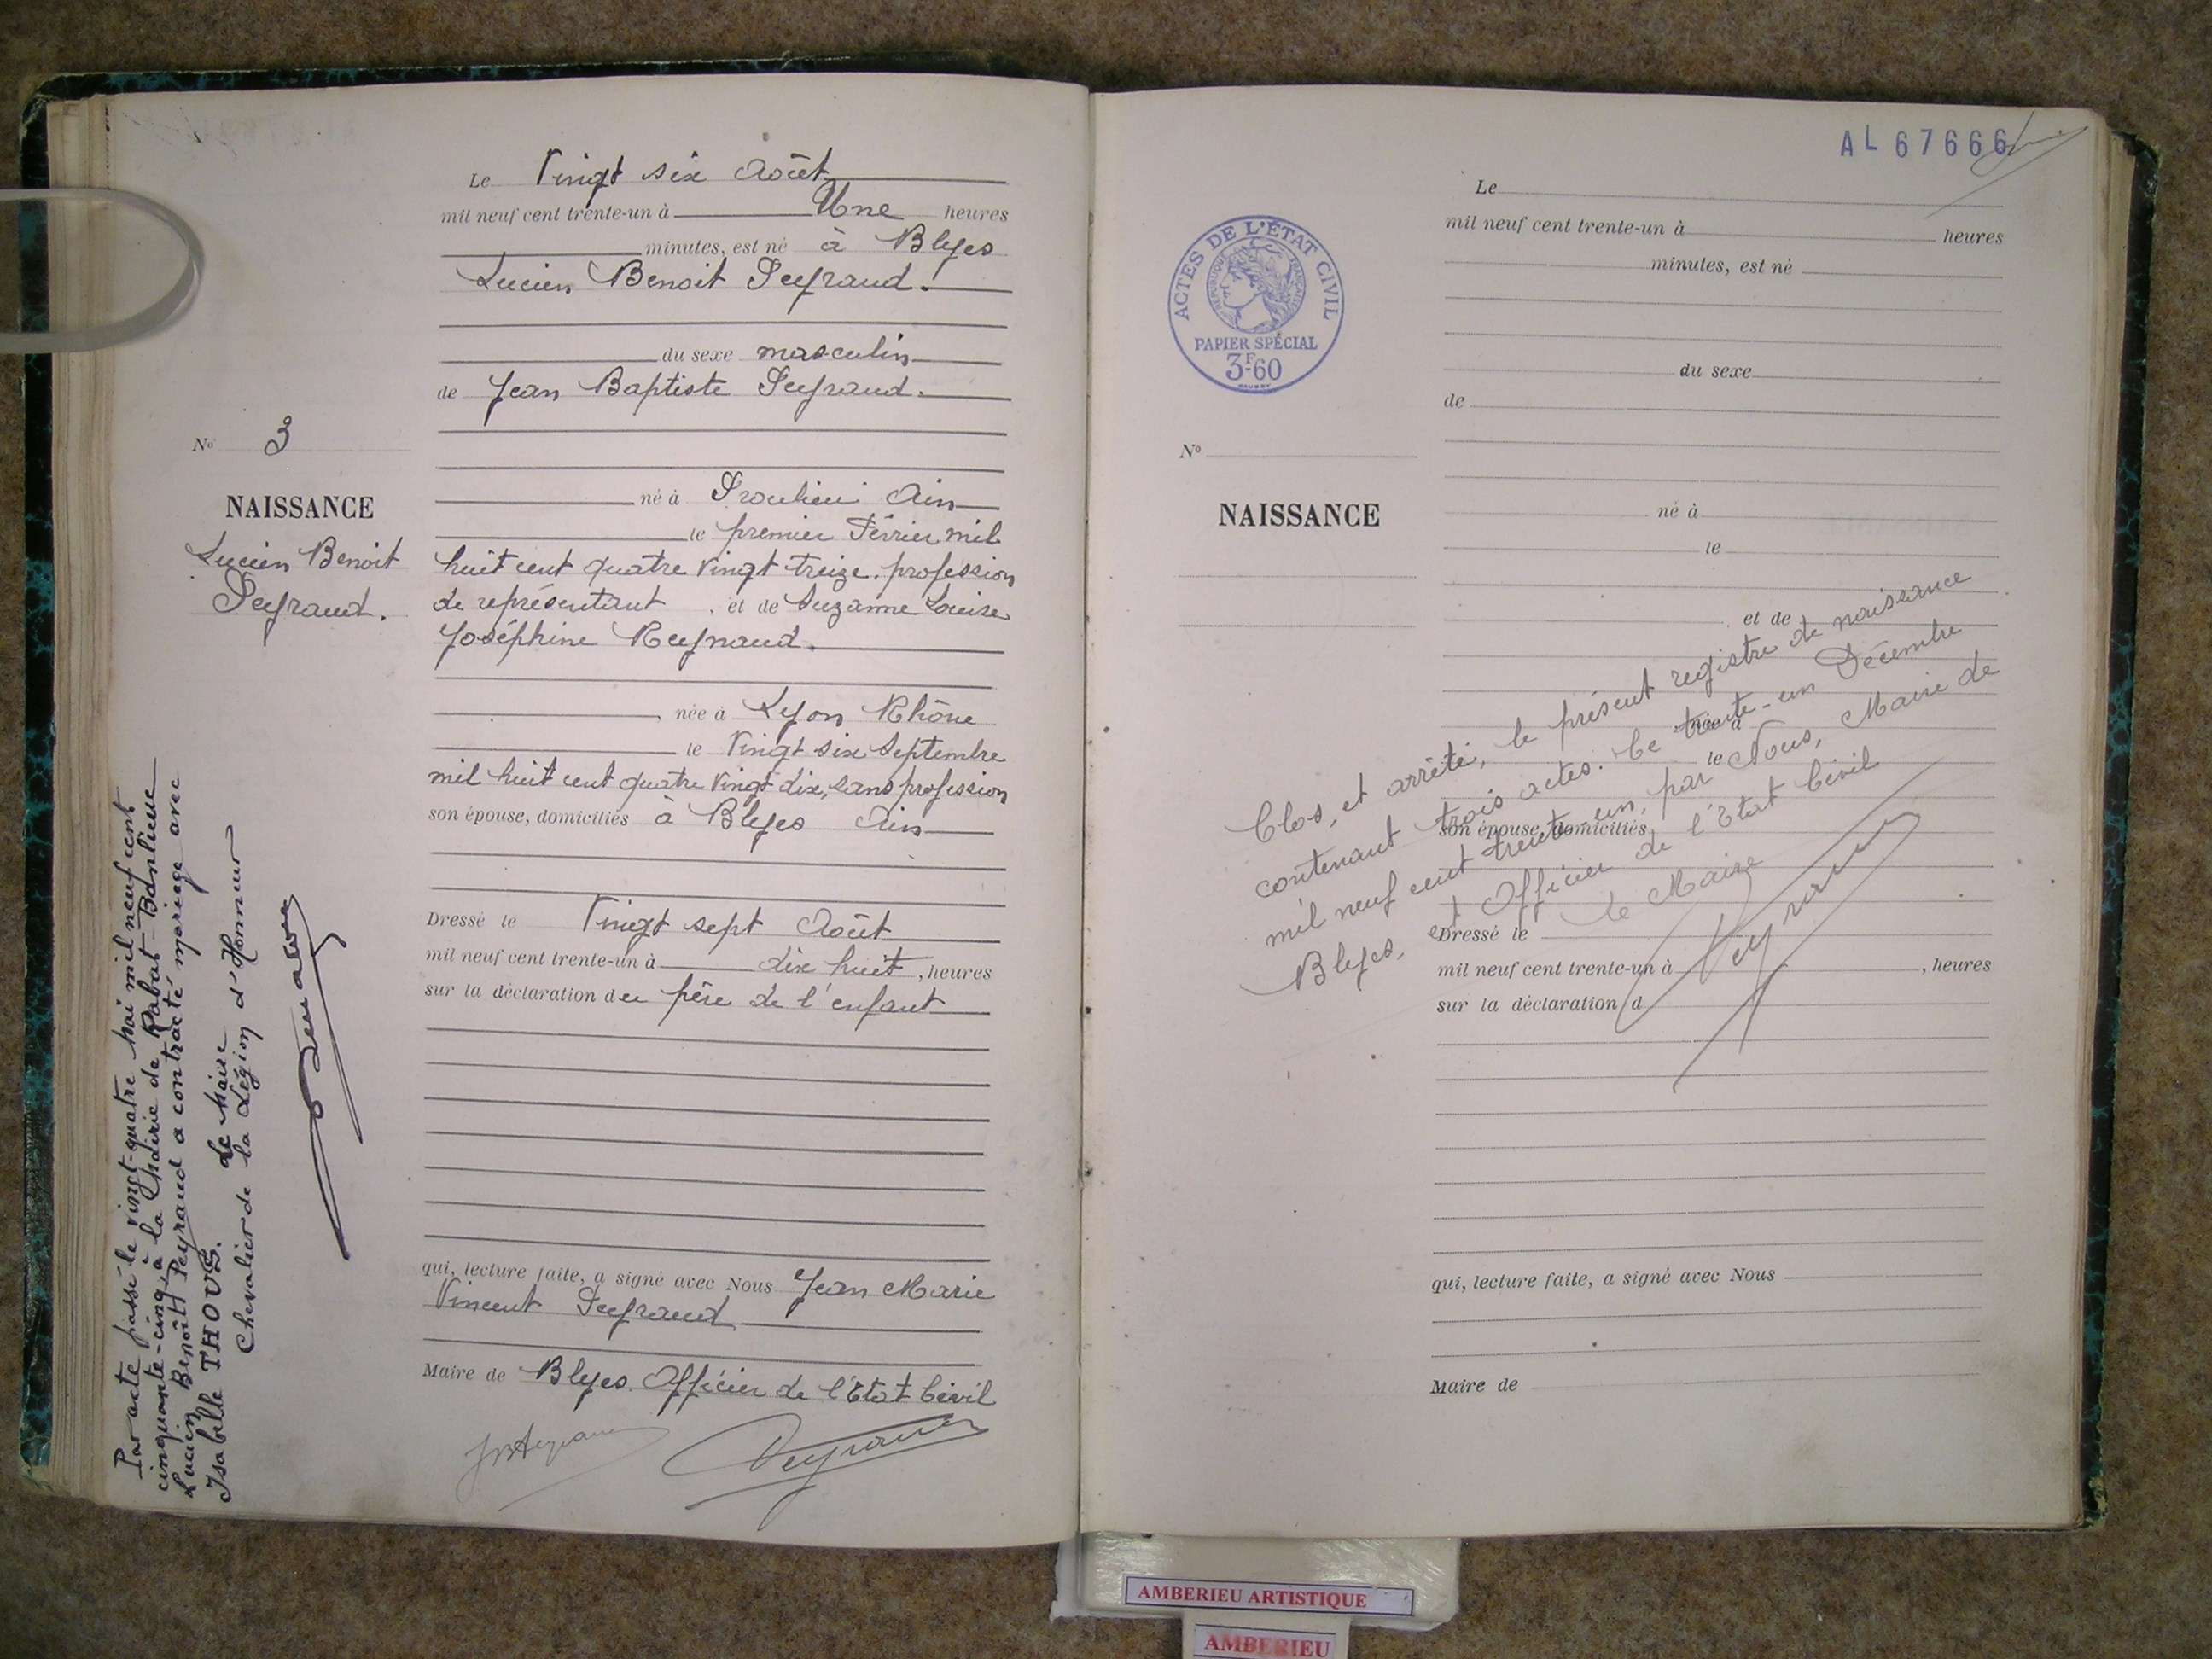 Le Vingt six Août
mil neuf cent trente-un à Une heures
minutes, est né à Blyes
Lucien Benoit Peyraud.
du sexe masculin
de Jean Baptiste Peyraud.
né à Proulieu Ain
le premier Février mil
huit cent quatre vingt treize. profession
de représentant, et de Suzanne Louise
Joséphine Reynaud.
, née à Lyon Rhône
le Vingt six Septembre
mil huit cent quatre vingt dix, sans profession
son épouse, domiciliés à Blyes Ain
Dressé le Vingt sept Août
mil neuf cent trente-un à dix huit, heures
sur la déclaration du père de l'enfant
qui, lecture faite, a signé avec Nous Jean Marie
Vincent Peyraud
Maire de Blyes. Officier de l'Etat Civil
JB Peyraud
Peyraud
No 3
NAISSANCE
Lucien Benoit
Peyraud.
Par acte passé le vingt-quatre Mai mil neuf cent
cinquante-cinq, à la Mairie de Rabat-Banlieue
Lucien Benoit Peyraud a contracté mariage avec
Isabelle THOUS. Le Maire
Chevalier de la Légion d'Honneur
AL 67666
ACTES DE L'ÉTAT CIVIL
RÉPUBLIQUE FRANÇAISE
PAPIER SPÉCIAL
3F.60
Le
mil neuf cent trente-un à heures
minutes, est né
du sexe
de
No
NAISSANCE
né à
le
et de
née à
le
son épouse, domiciliés
Dressé le
mil neuf cent trente-un à , heures
sur la déclaration d
qui, lecture faite, a signé avec Nous
Maire de
Clos, et arrêté, le présent registre de naissance
contenant trois actes. Ce trente-un Décembre
mil neuf cent trente-un, par Nous, Maire de
Blyes, et Officier de l'Etat Civil
Le Maire
Peyraud
AMBERIEU ARTISTIQUE
AMBERIEU